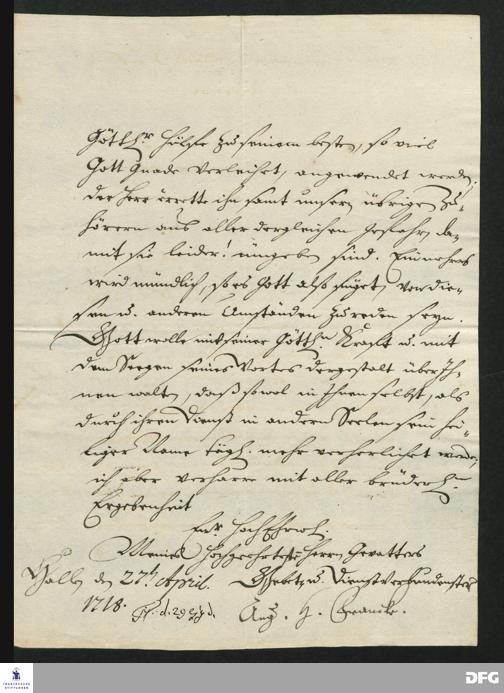 Göttl.r Hülffe zu seinem besten, so viel
Gott Gnade verleihet, angewendet werden.
Der Herr errette ihn samt unsern übrigen Zu-
hörern aus aller dergleichen Gefahr, da-
mit sie leider! umgeben sind. Ein mehrers
wird mündlich, so es Gott also füget, von die-
sen u. anderen Umständen zu reden seyn.
Gott wolle mit seiner Göttl.n Krafft u. mit
dem Seegen seines Wortes dergestalt über Ih-
nen walten, daß sowol in Ihnen selbst, als
durch ihren Dienst in andern Seelen sein hei-
liger Name tägl. mehr verherrlichet werde,
ich aber verharre mit aller brüderl.n
Ergebenheit
Ew. HochEhrw.
Meines Hochgeehrtesten Herrn Gevatters
Halle den 27.t April. Gebet- u. Dienstverbundenster
1718. Aug. H. Francke.
FRANCKESCHE
STIFTUNGEN
DFG